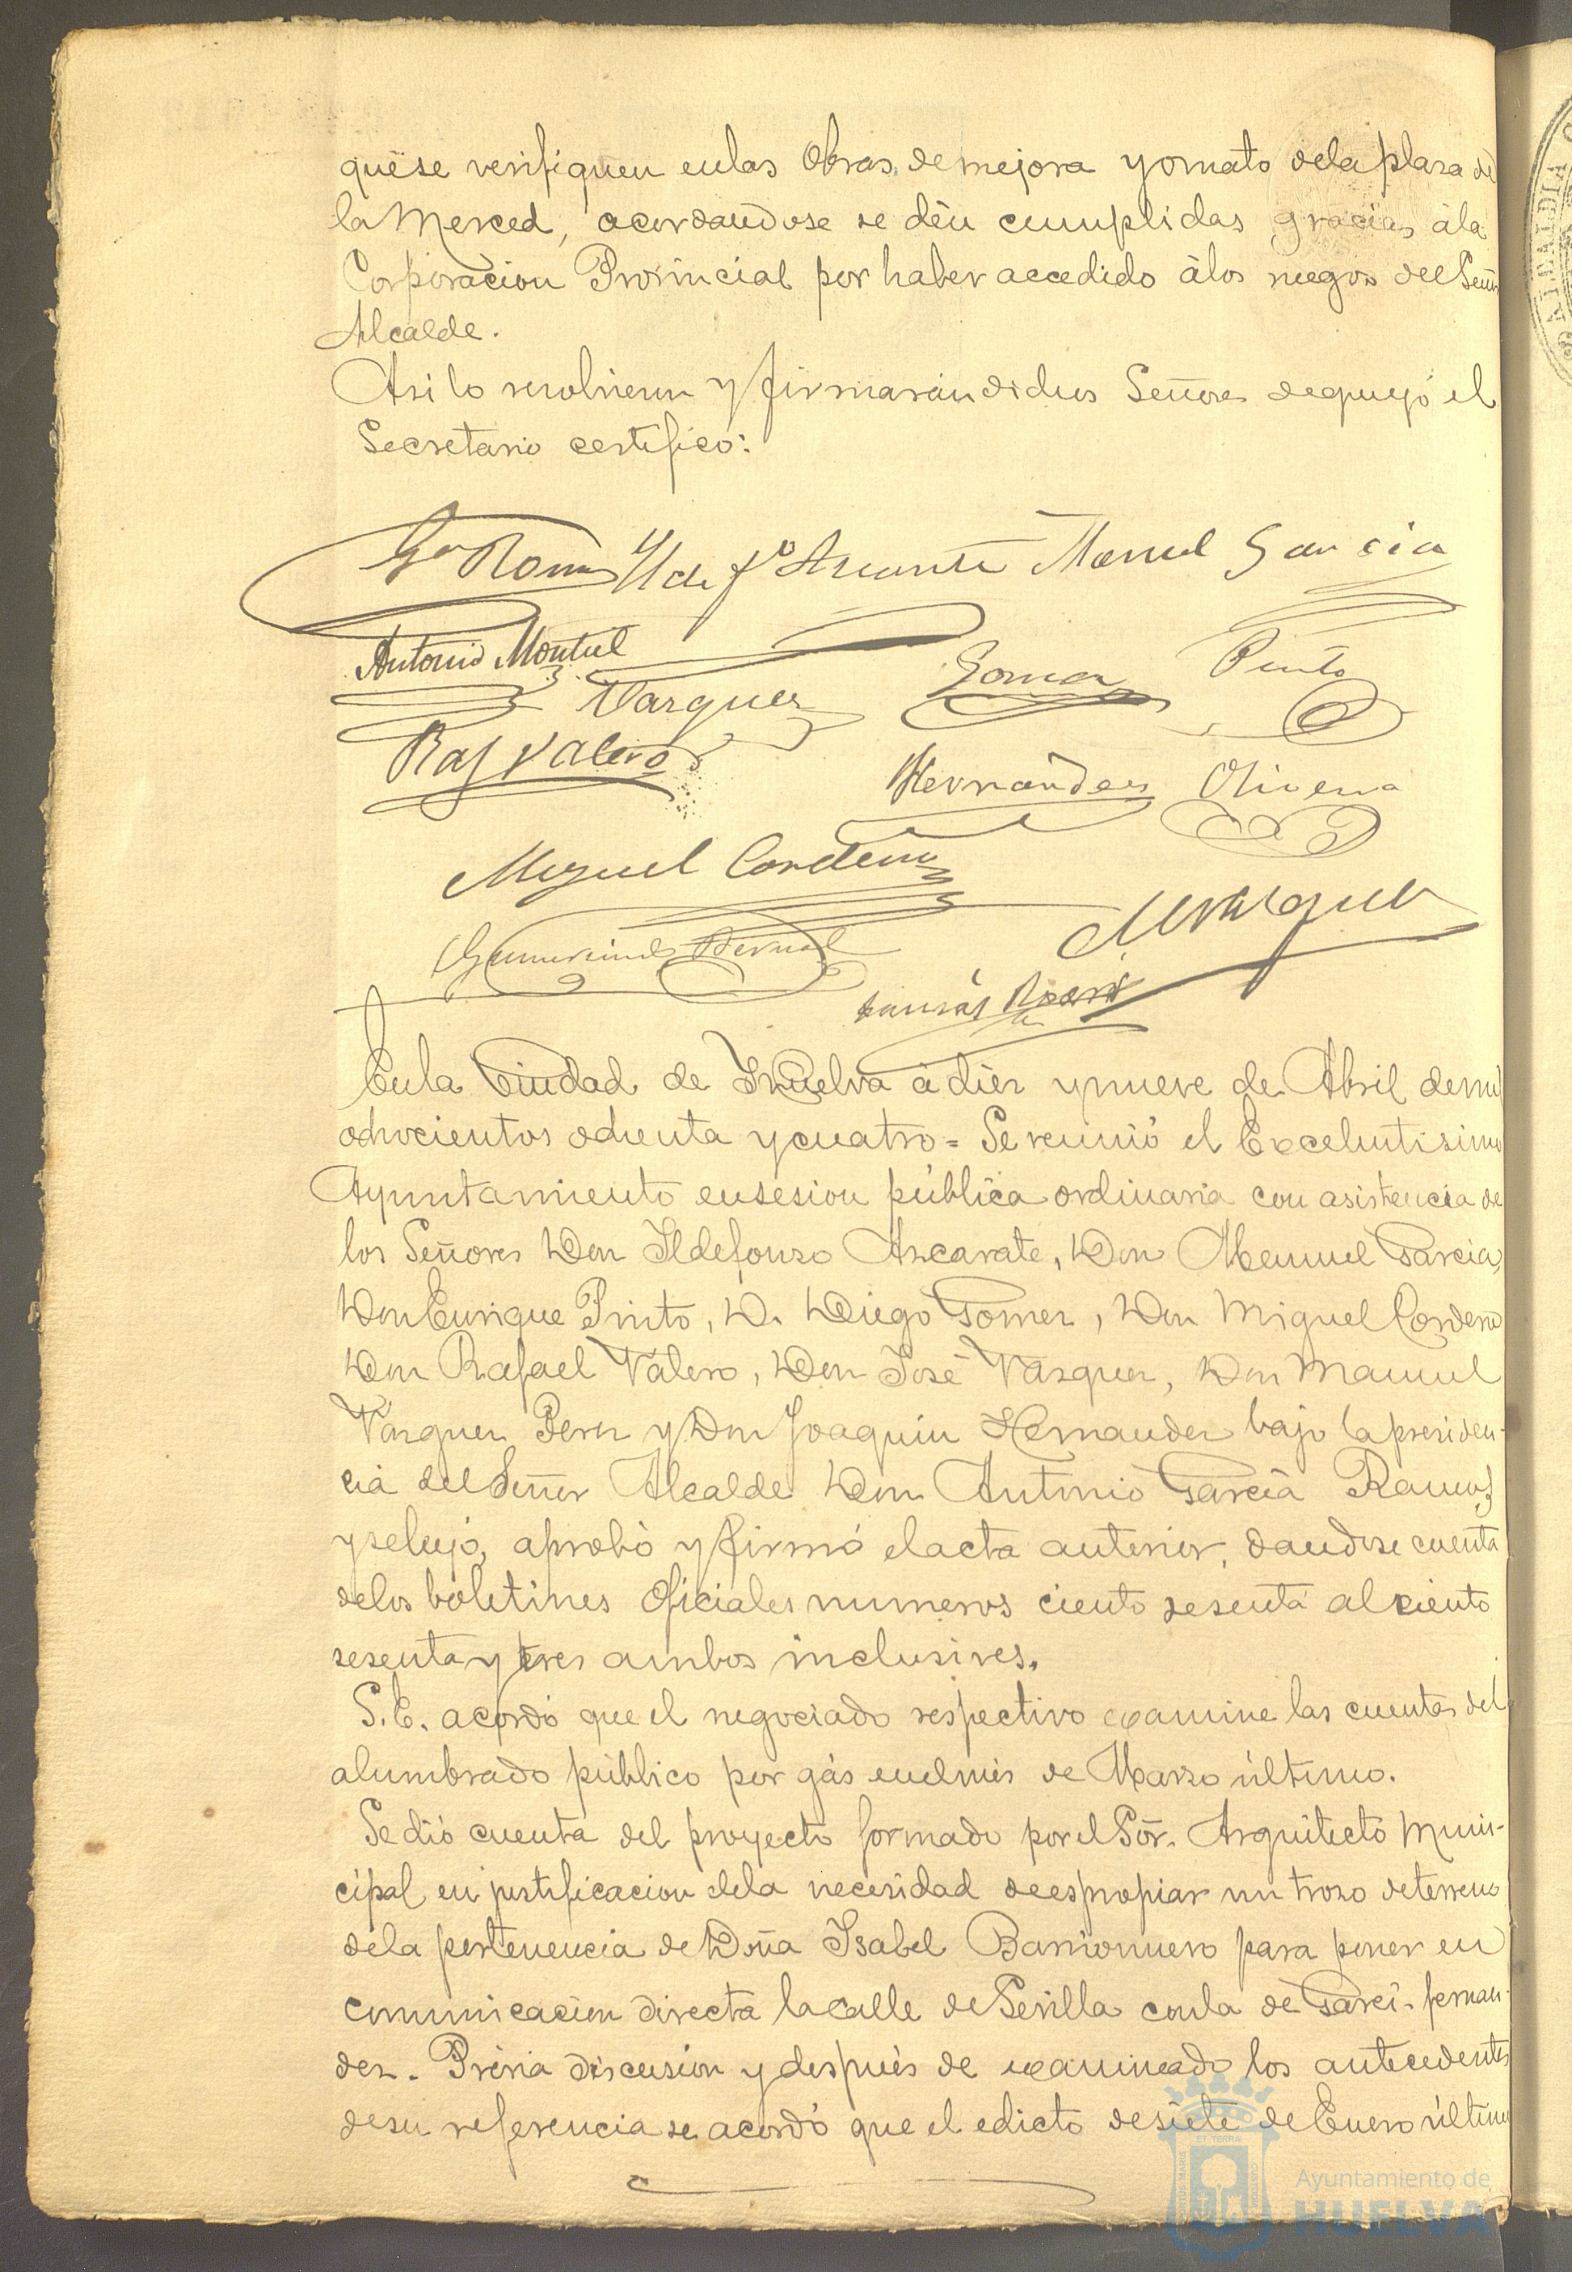 que se verifiquen en las Obras de mejora y ornato de la plaza de
la Merced, acordandose se dén cumplidas gracias á la
Corporacion Provincial por haber accedido á los ruegos del Señor
Alcalde.
Asi lo resolvieron y firmarán dichos Señores de que yo el
Secretario certifico:
Ga Ramos Yldefo Azcarate Manuel Garcia
Antonio Montiel
Vazquez Gomez Pinto
Raf Valero
Hernández Olivera
Miguel Cordero
M Vazquez
Gumersindo Bernal
En la Ciudad de Huelva á diez y nueve de Abril de mil
ochocientos ochenta y cuatro = Se reunió el Excelentisimo
Ayuntamiento en sesion pública ordinaria con asistencia de
los Señores Don Ildefonso Azcarate, Don Manuel Garcia,
Don Enrique Pinto, D. Diego Gomez, Don Miguel Cordero
Don Rafael Valero, Don José Vazquez, Don Manuel
Vázquez Perez y Don Joaquin Hernandez bajo la presiden-
cia del Señor Alcalde Don Antonio García Ramos
y se leyó, aprobó y firmó el acta anterior, dandose cuenta
de los boletines Oficiales numeros ciento sesenta al ciento
sesenta y tres ambos inclusives.
S. E. acordó que el negociado respectivo examine las cuentas del
alumbrado público por gás en el mes de Marzo último.
Se dió cuenta del proyecto formado por el Sór. Arquitecto Muni-
cipal en justificacion de la necesidad de espropiar un trozo de terreno
de la pertenencia de Doña Isabel Barrionuevo para poner en
comunicacion directa la calle de Sevilla con la de Garci-fernan-
dez. Prévia discusion y después de examinado los antecedentes
de su referencia se acordó que el edicto de siete de Enero último
Ayuntamiento de
HUELVA